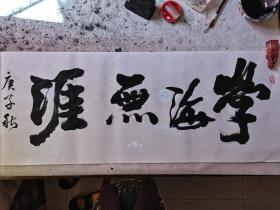 学海無涯
庚子秋